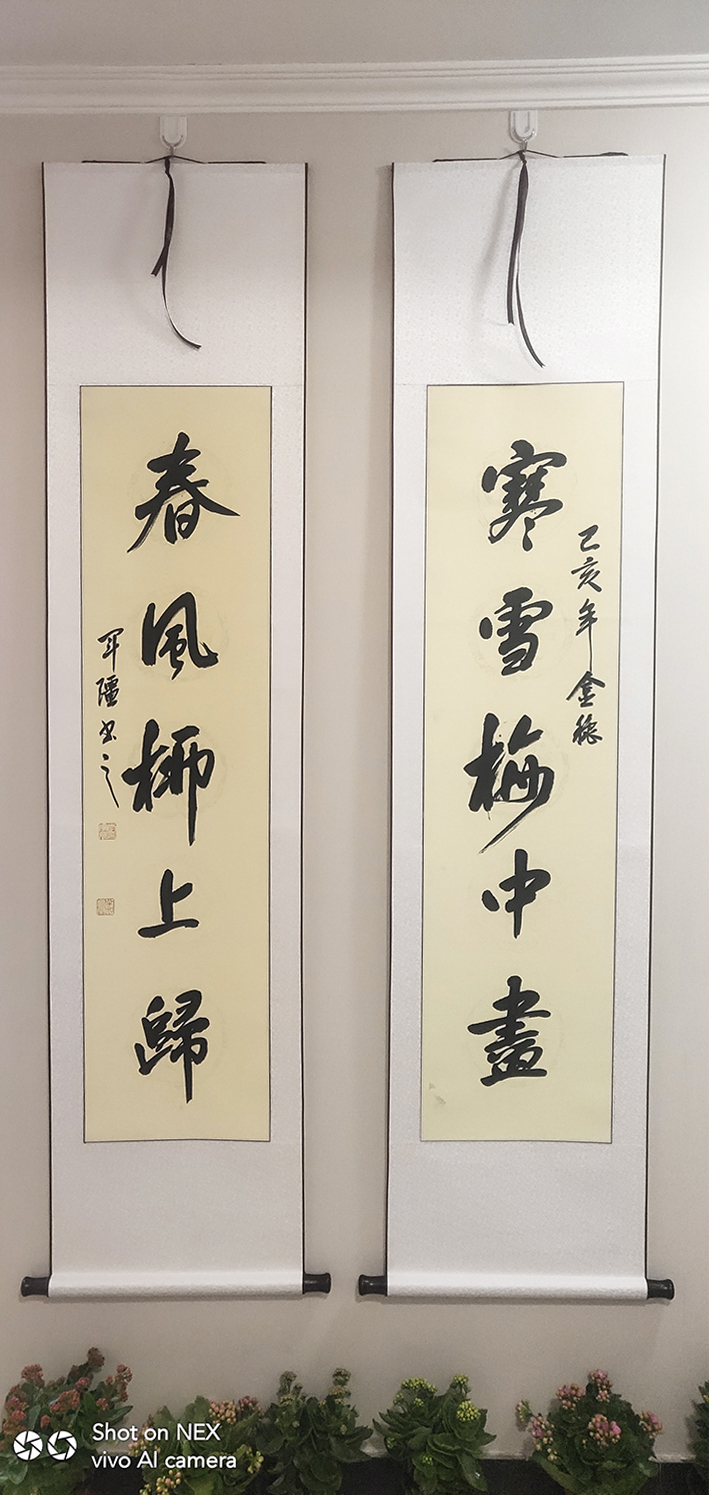 寒雪梅中盡
己亥年金穐
春風柳上歸
書之
Shot on NEX
vivo AI camera